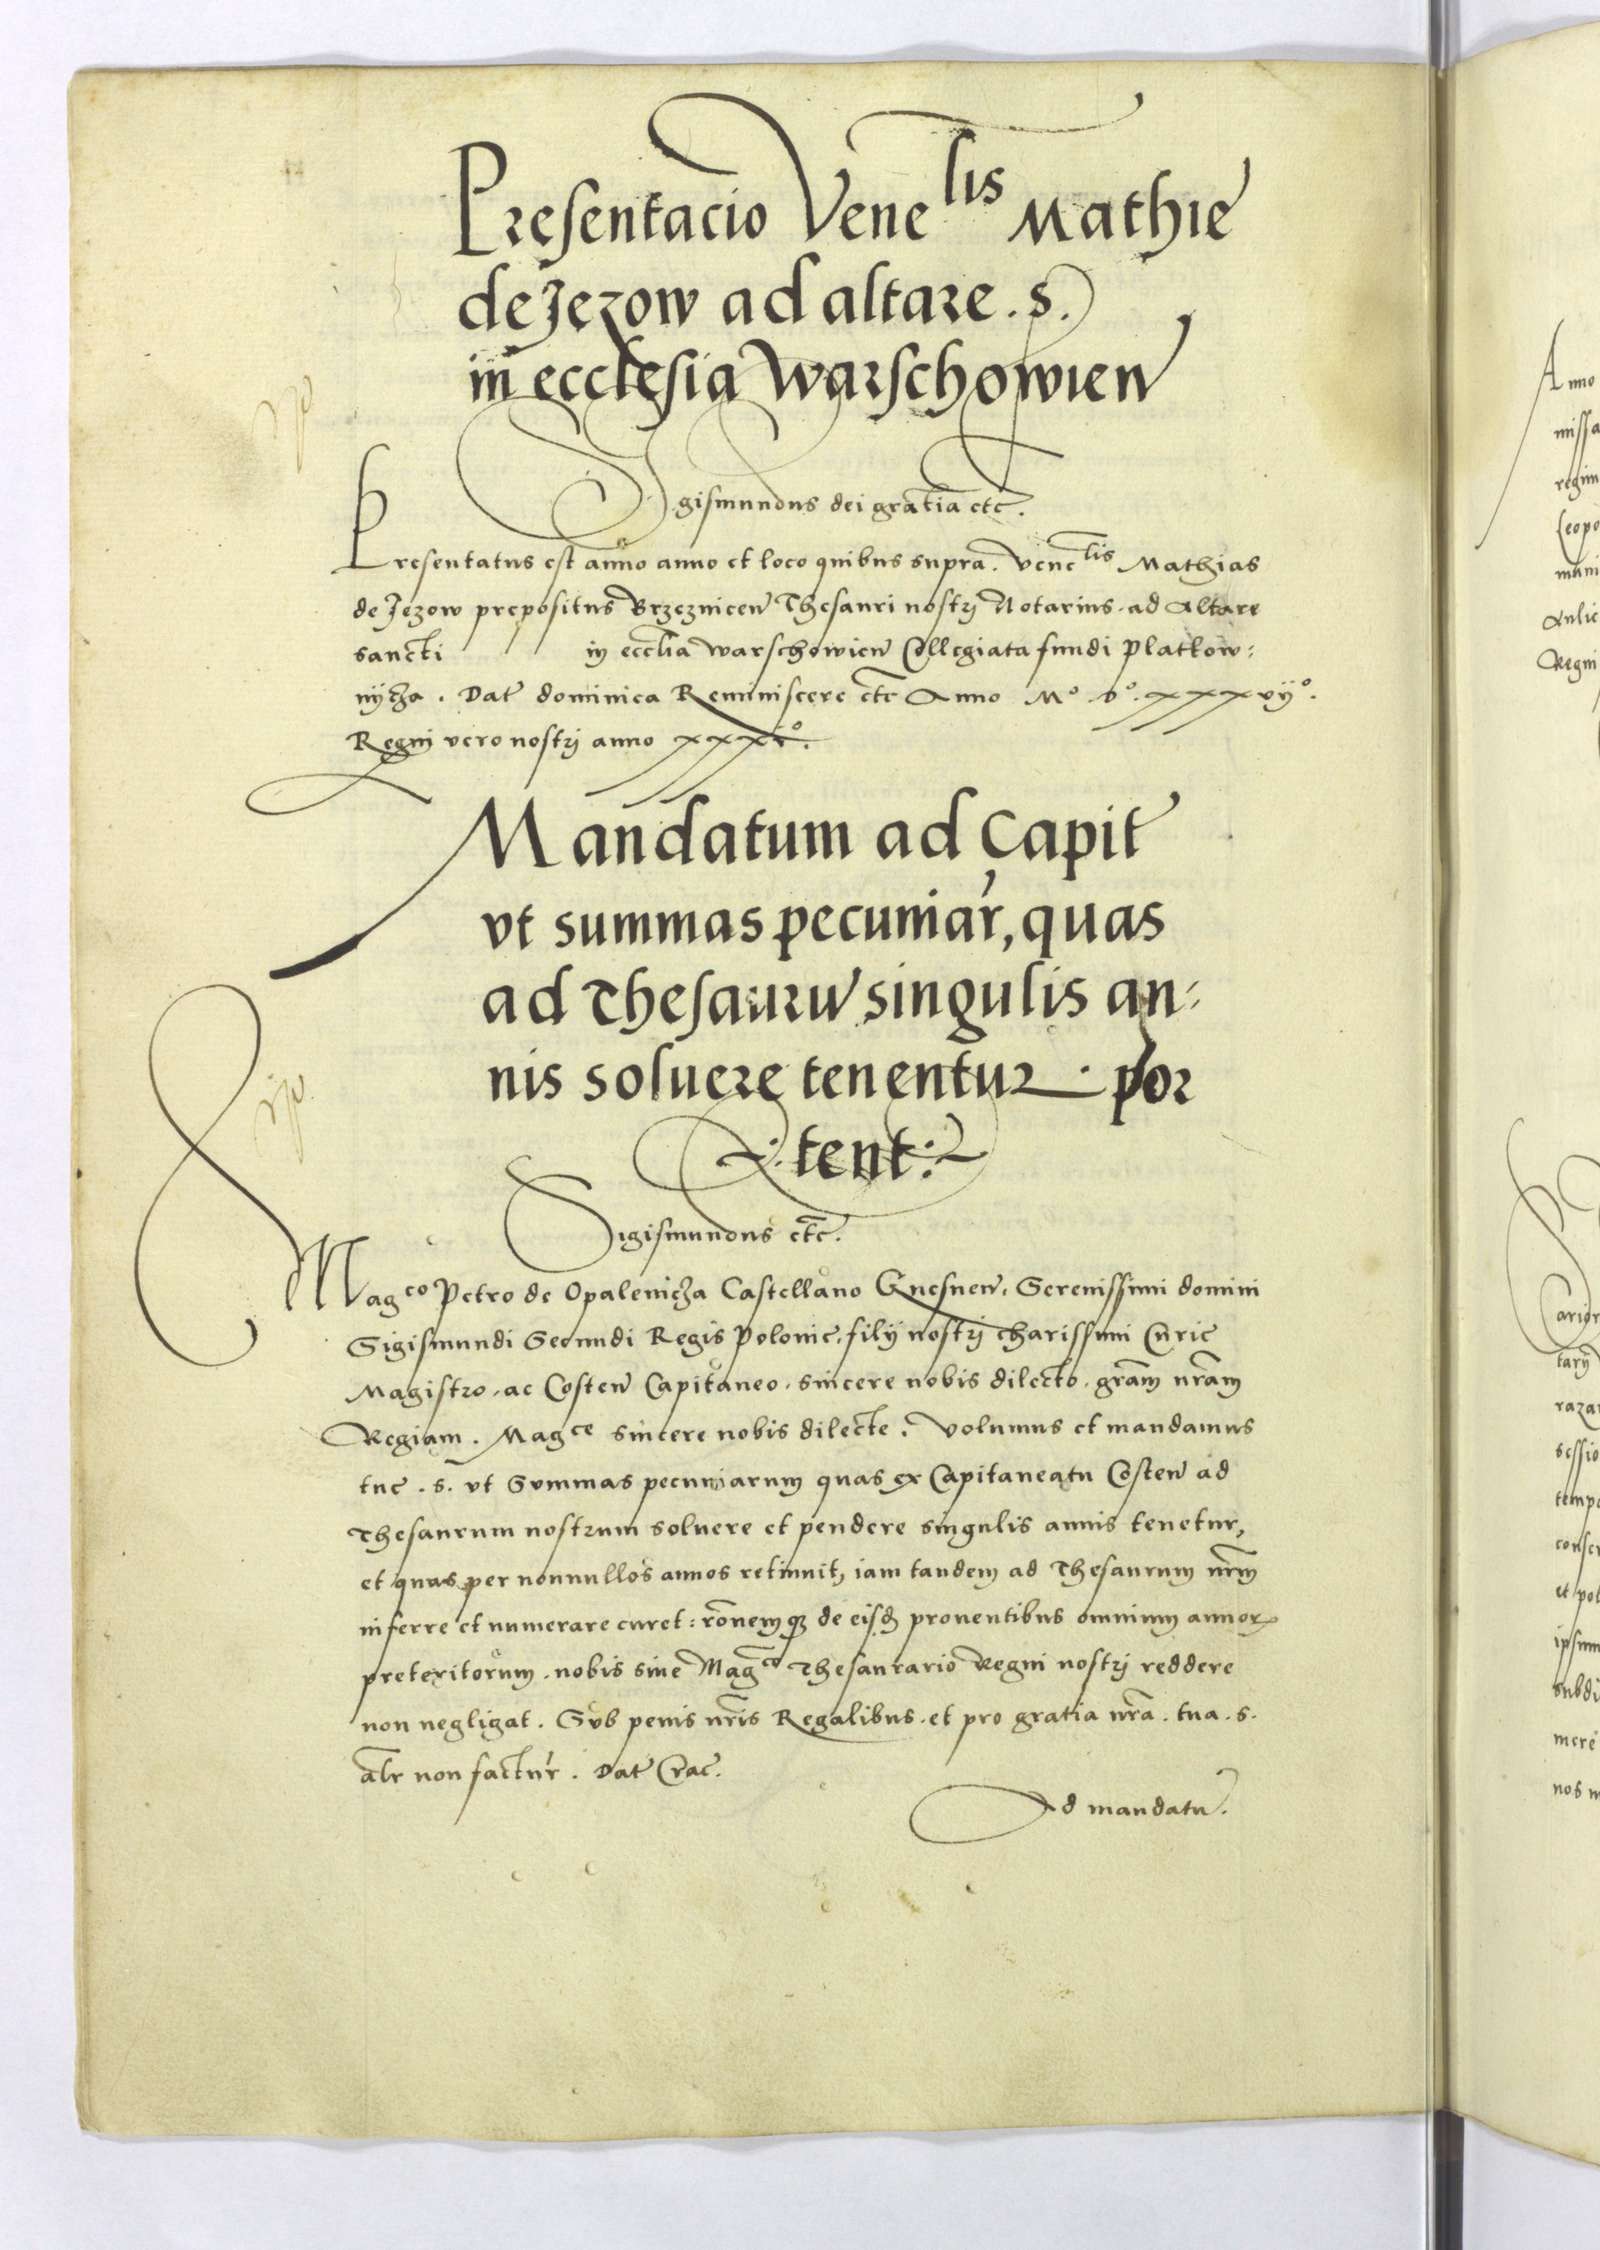 Presentacio Vene^lis Mathie
de Jezow ad altare . s .
in ecclesia Warschowien
Sigismundus dei gratia etc.
Presentatus est anno anno et loco quibus supra . Vene^lis Mathias
de Jezow prepositus Brzeznicen Thesauri nostri Notarius . ad Altare
sancti in ecclia Warschowien Collegiata fundi Platkow:
nycza . Dat dominica Reminiscere etc Anno M° D° . xxxvij° .
Regni vero nostri anno
Mandatum ad Capit
vt summas pecuniar, quas
ad Thesauru singulis an:
nis soluere tenentur . por
: tent :
Sigismundus etc.
Mag^co Petro de Opalenicza Castellano Gnesnen . Serenissimi domini
Sigismundi Secundi Regis Polonie . filij nostri charissimi Curie
Magistro . ac Costen Capitaneo . sincere nobis dilecto . gram nram
Regiam . Mag^ce sincere nobis dilecte . Volumus et mandamus
tue . s . vt Summas pecuniarum quas ex Capitaneatu Costen ad
Thesaurum nostrum soluere et pendere singulis annis tenetur,
et quas per nonnullos annos retinuit, iam tandem ad Thesaurum nrm
inferre et numerare curet : ronemq de eisd prouentibus omnium annor
preteritorum . nobis siue Mag^co Thesaurario Regni nostri reddere
non negligat . Sub penis nris Regalibus . et pro gratia nra . tua . s .
alr non factur . Dat Crac .
Ad mandatu .